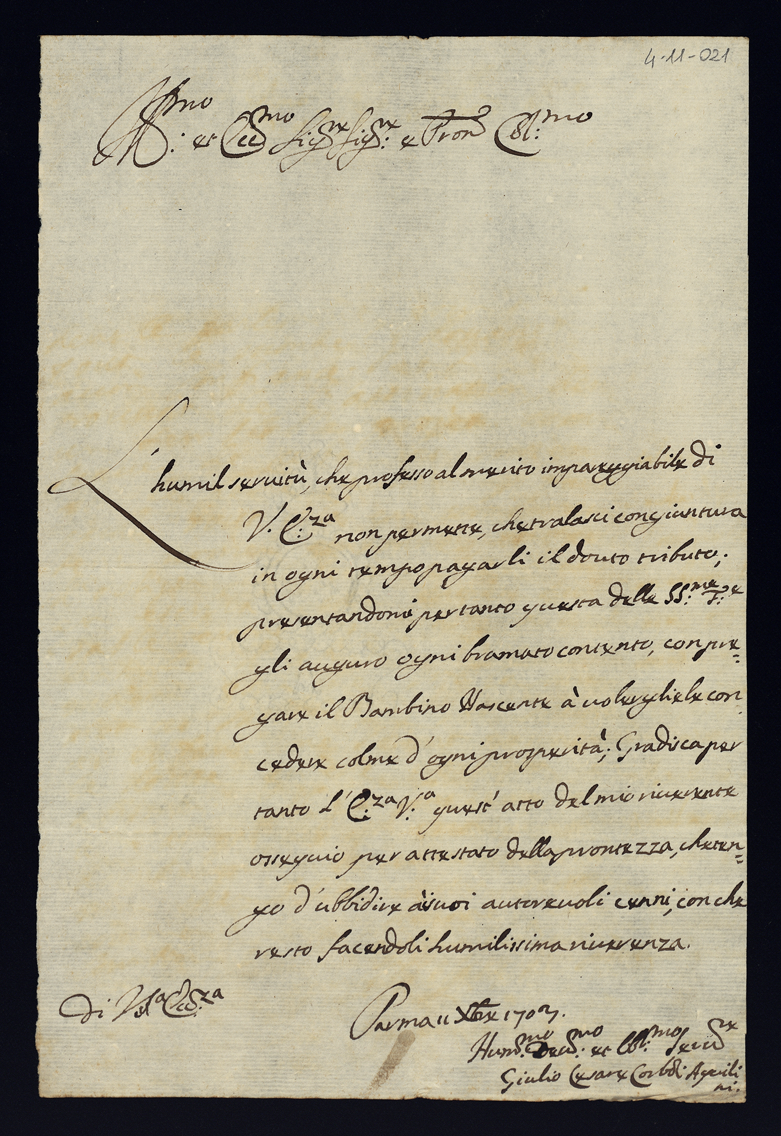 4-11-021
Ill:mo et Ecc:mo Sig:re Sig:re e Pron Col:mo
L'humil seruitù, che professo al merito impareggiabile di
V. E:za non permette, che tralasci congiuntura
in ogni tempo pagarli il douto tributo;
presentandomi pertanto questa delle SS:me F:e
gli auguro ogni bramato contento, con pre=
gare il Bambino Nascente à uolergliele con
cedere colme d'ogni prosperità; Gradisca per
tanto l'E:za V:a quest' atto del mio riuerente
ossequio per attestato della prontezza, che ten=
go d'ubbidire à suoi autoreuoli cenni, con che
resto facendoli humilissima riuerenza.
Di V:ra Ecc:za
Parma 11 Xbre 1707.
Hum:mo Deu:mo et Obl:mo Ser:re
Giulio Cesare Corboli Aquili
ni.